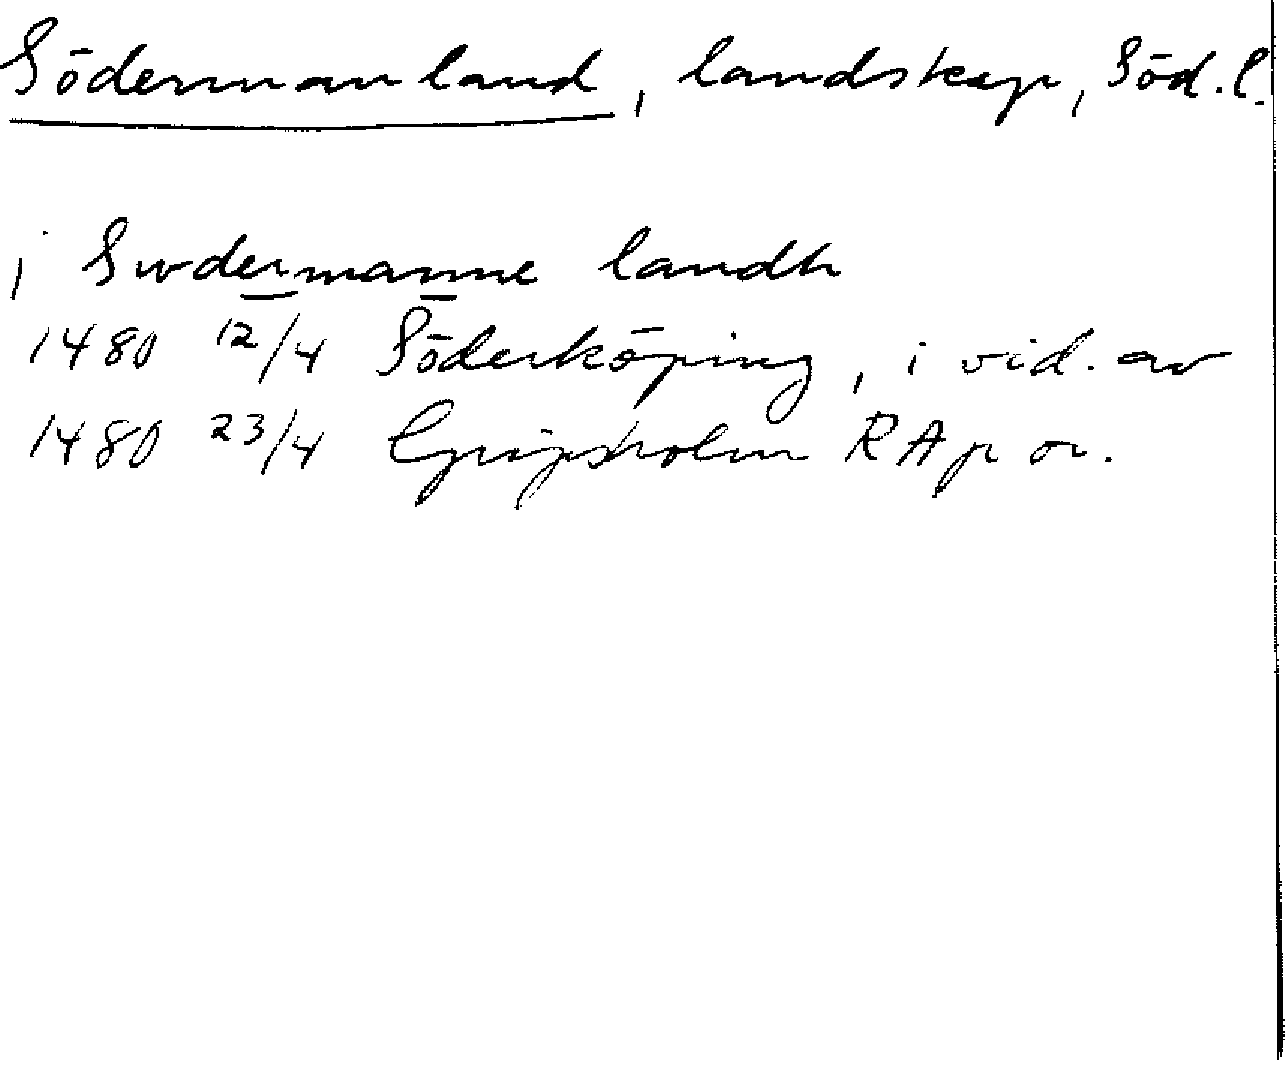 Södermanland, landskap, Söd. l.
j Swdermanne landh
1480 12/4 Söderköping, i vid. av
1480 23/4 Gripsholm RAp or.